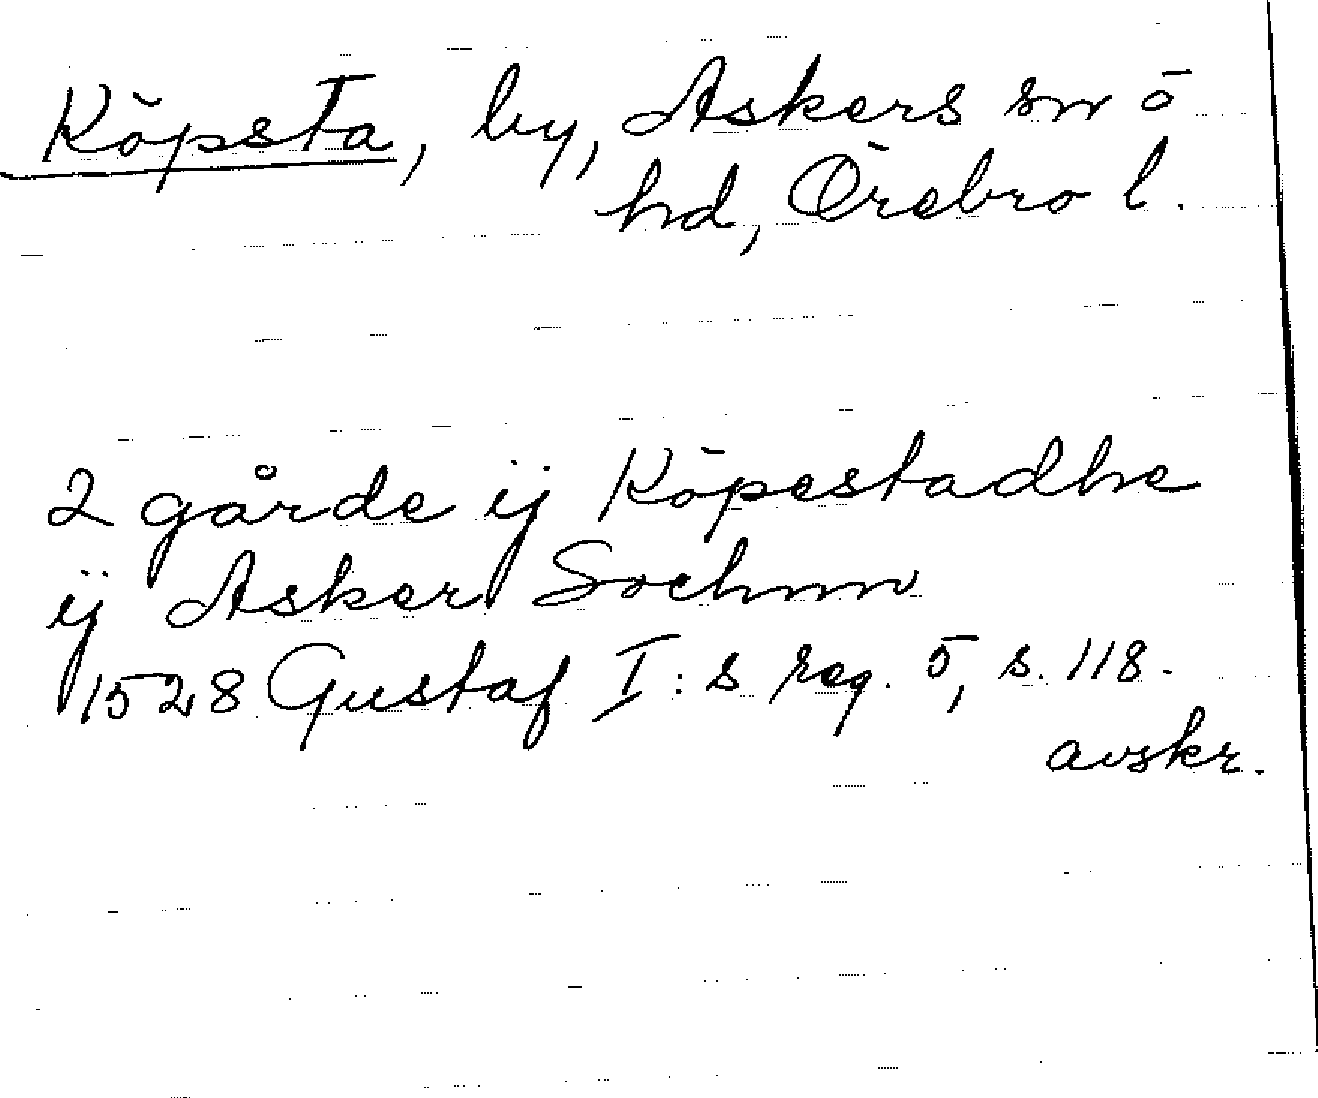 Köpsta, by, Askers sn ö
hd, Örebro l.
2 gårde ij Köpestadhe
ij Asker Sochnn
1528 Gustaf I:s reg. 5, s. 118.
avskr.